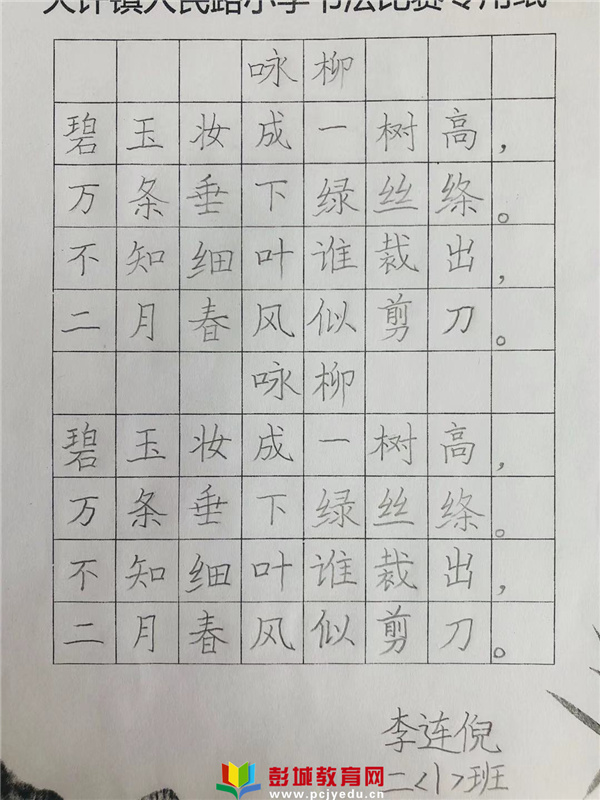 大许镇人民路小学书法比赛专用纸
咏柳
碧玉妆成一树高，
万条垂下绿丝绦。
不知细叶谁裁出，
二月春风似剪刀。
咏柳
碧玉妆成一树高，
万条垂下绿丝绦。
不知细叶谁裁出，
二月春风似剪刀。
李连倪
二<1>班
彭城教育网
www.pcjyedu.cn